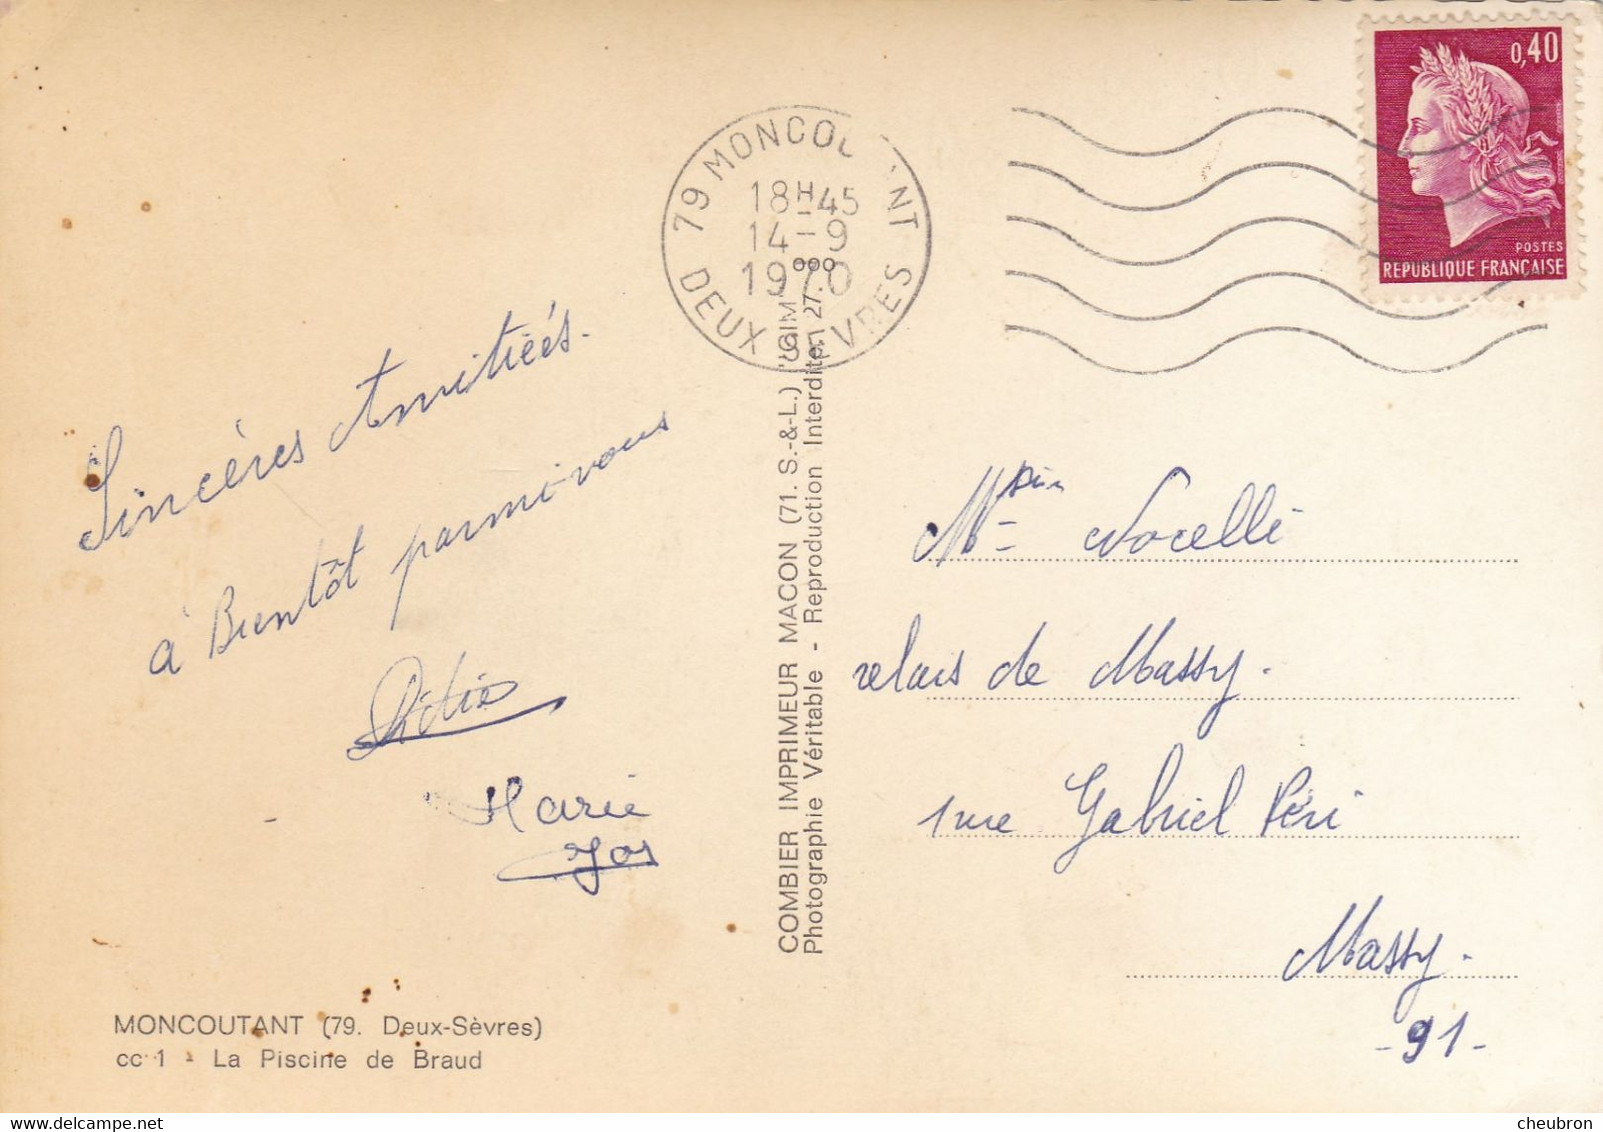 0,40
POSTES
REPUBLIQUE FRANÇAISE
79 MONCOU NT
18H45
14-9
1970
DEUX SEVRES
Sincères Amitiées.
à Bientôt parmi-vous
Didier
Marie
Jos
MONCOUTANT (79. Deux-Sèvres)
cc 1 - La Piscine de Braud
COMBIER IMPRIMEUR MACON (71. S.-&-L.) "CIM"
Photographie Véritable - Reproduction Interdite
Nocelli
relais de Massy.
1 rue Gabriel Péri
Massy.
-91-
www.delcampe.net
cheubron